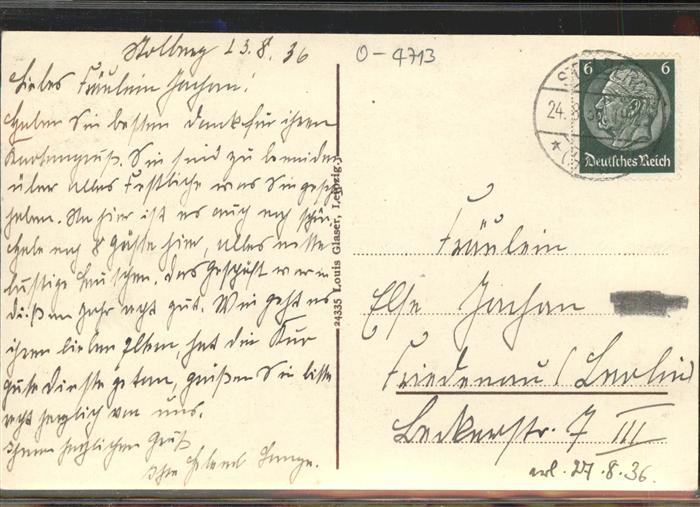 Stolberg 23.8.36
O-4713
Liebes Fräulein Jachan!
Haben Sie besten Dank für ihren
Kartengruß. Sie sind zu beneiden
über alles Festliche was Sie gesehen
haben. Na hier ist es auch noch schön
habe noch 8 Gäste hier, alles nette
lustige Menschen. Das Geschäft war in
diesem Jahr recht gut. Wie geht es
ihren lieben Eltern, hat die Kur
gute Dienste getan, grüßen Sie bitte
recht herzlich von uns.
Ihnen herzlichen Gruß
Ihre
24335 Louis Glaser, Leipzig.
ST
24.8.36
6 6
Deutsches Reich
Fräulein
Else Jachan
Friedenau (Berlin)
Beckerstr. 7 III
erl. 27.8.36.